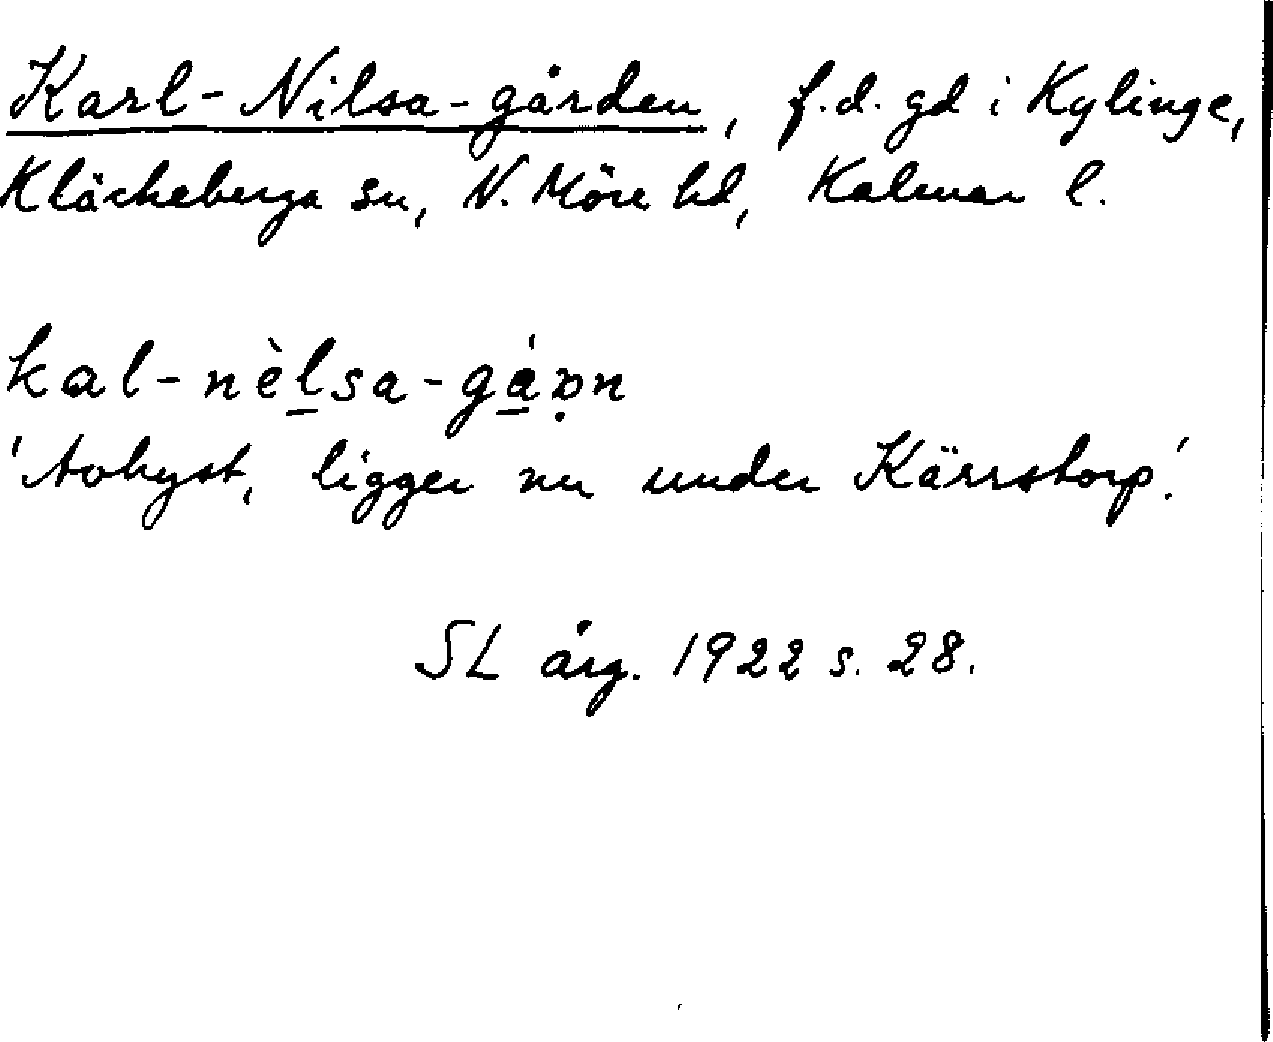 Karl-Nilsa-gården, f.d. gd i Kylinge,
Kläckeberga sn, N. Möre hd, Kalmar l.
kal-nèlsa-gáɒ̣n
'Avhyst, ligger nu under Kärrstorp.'
SL årg. 1922 s. 28.